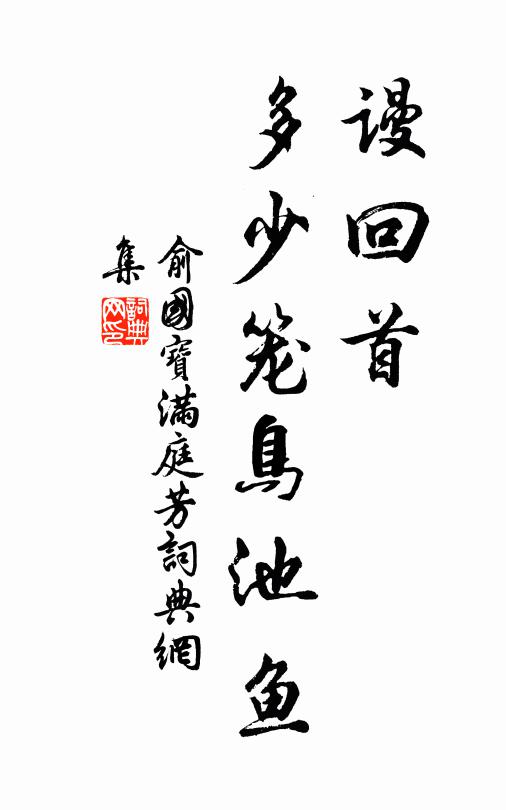 謾回首
多少笼鳥池鱼
俞國寶滿庭芳詞典網
集
詞典网印